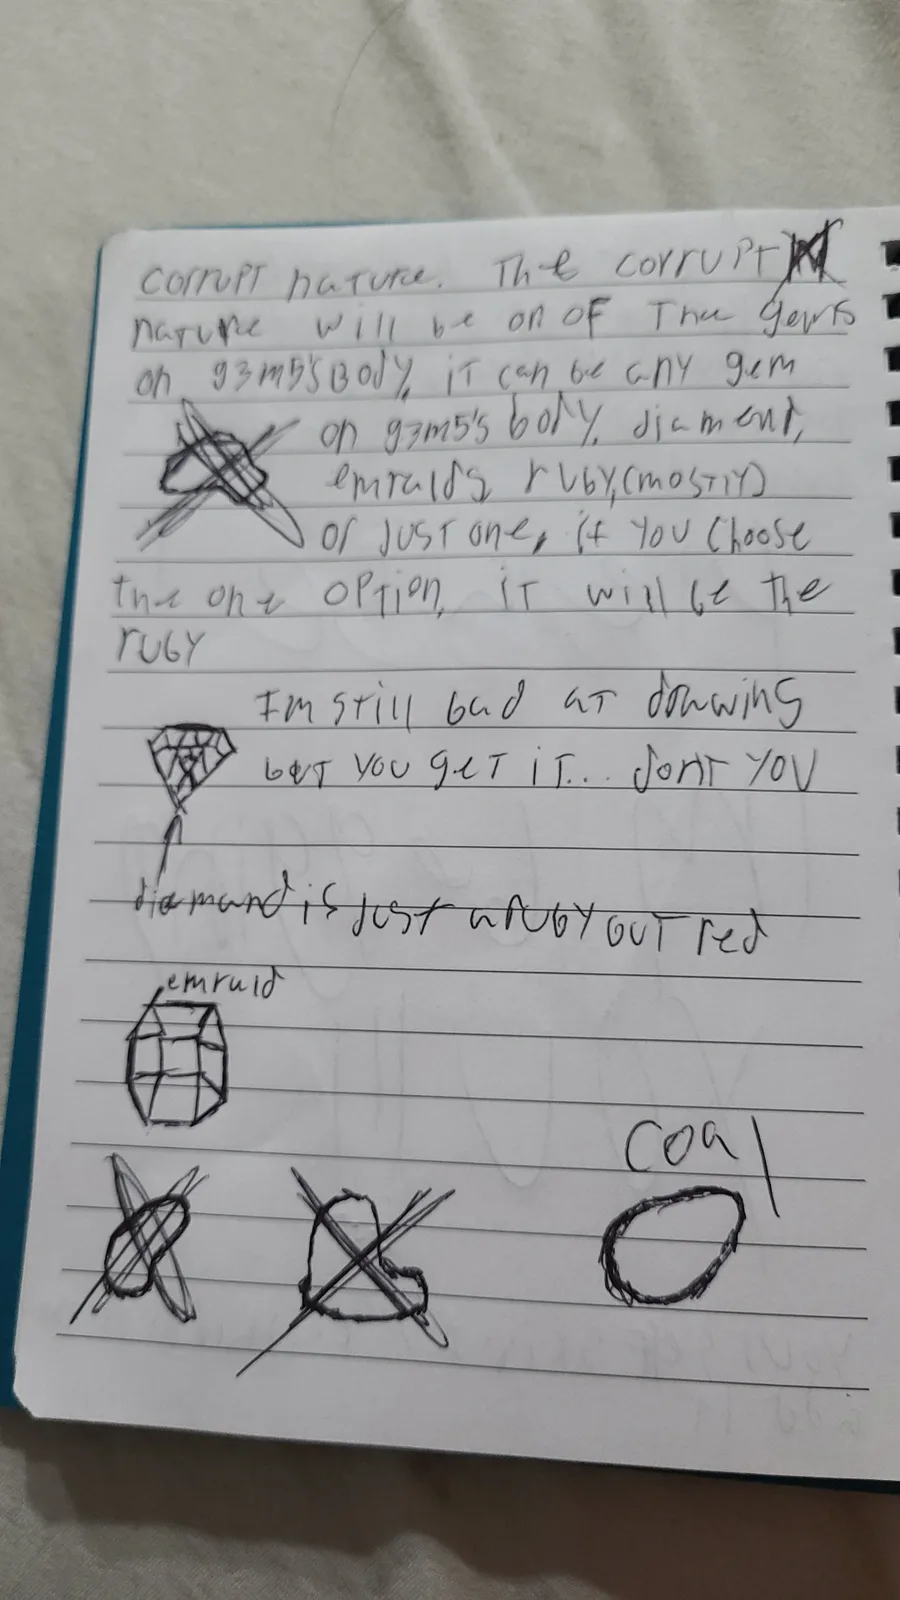 corrupt nature. The corrupt
nature will be on of The gems
on g3m5's Body, it can be any gem
on g3m5's body, diamend,
emralds, ruby,(mostly)
or just one, if you choose
the one option, it will be the
ruby
I'm still bad at drawing
but you get it... dont you
diamand is just a ruby but red
emrald
coal